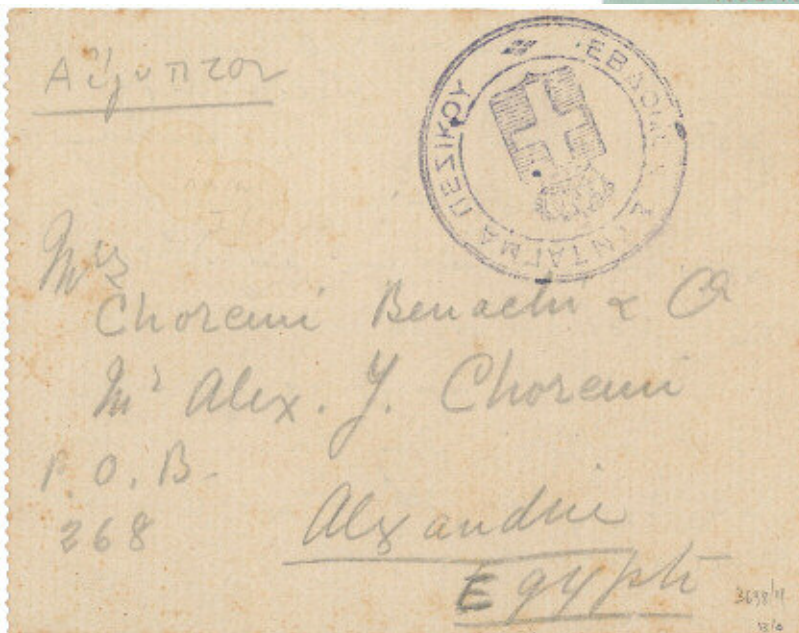 Αίγυπτον
ΣΥΝΤΑΓΜΑ ΠΕΖΙΚΟΥ
Mrs
Choremi Benachi & Co
Mr Alex. J. Choremi
P.O.B.
268
Alexandrie
Egypte